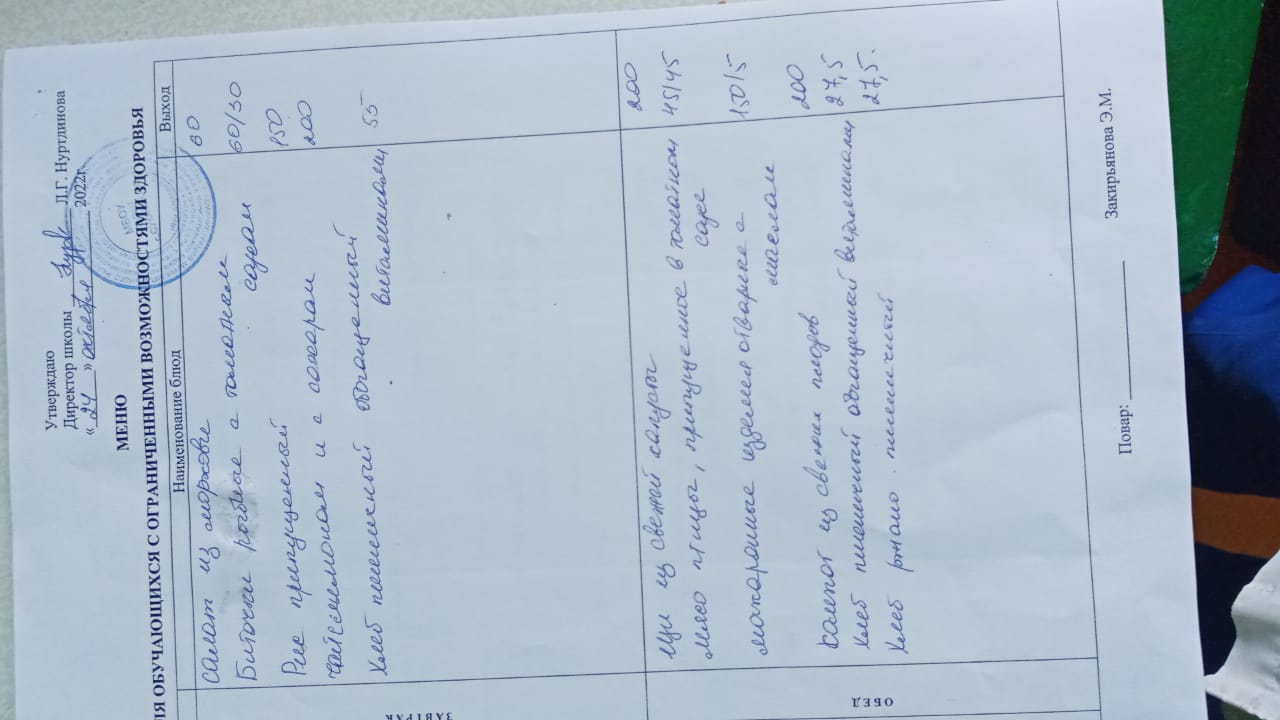 Утверждаю
Директор школы Л.Г. Нуртдинова
« 24 » октября 2022г.
МЕНЮ
ЛЯ ОБУЧАЮЩИХСЯ С ОГРАНИЧЕННЫМИ ВОЗМОЖНОСТЯМИ ЗДОРОВЬЯ
Наименование блюд Выход
ЗАВТРАК
Салат из моркови 60
Биточки рыбные с томатным 60/30
соусом
Рис припущенный 150
Чай с лимоном и с сахаром 200
Хлеб пшеничный обогащенный 55
витаминами
ОБЕД
Щи из свежей капусты 200
Мясо птицы, припущенное в томатном 45/45
соусе
Макаронные изделия отварные с 150/5
маслом
Компот из свежих плодов 200
Хлеб пшеничный обогащенный витаминами 27,5
Хлеб ржано-пшеничный 27,5.
Повар: Закирьянова Э.М.